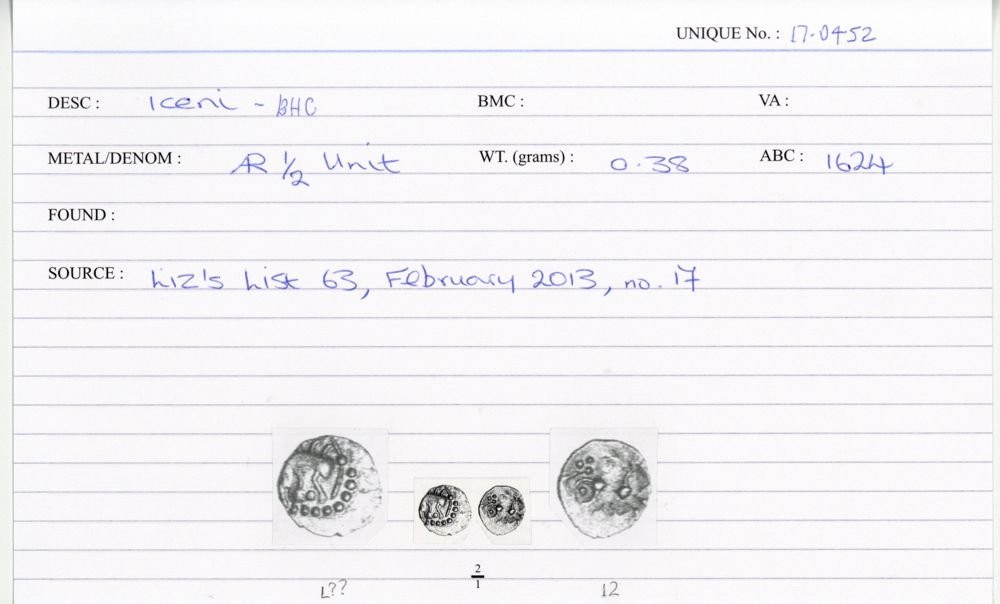 UNIQUE No. : 17.0452
DESC : Iceni - BHC BMC : VA :
METAL/DENOM : AR ½ Unit WT. (grams) : 0.38 ABC : 1624
FOUND :
SOURCE : Liz's List 63, February 2013, no. 17
2
1
L?? 12